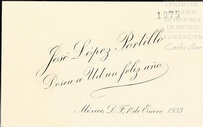 1075
José López Portillo
Desea a Ud. un feliz año
México, D.F. 1º de Enero 1933